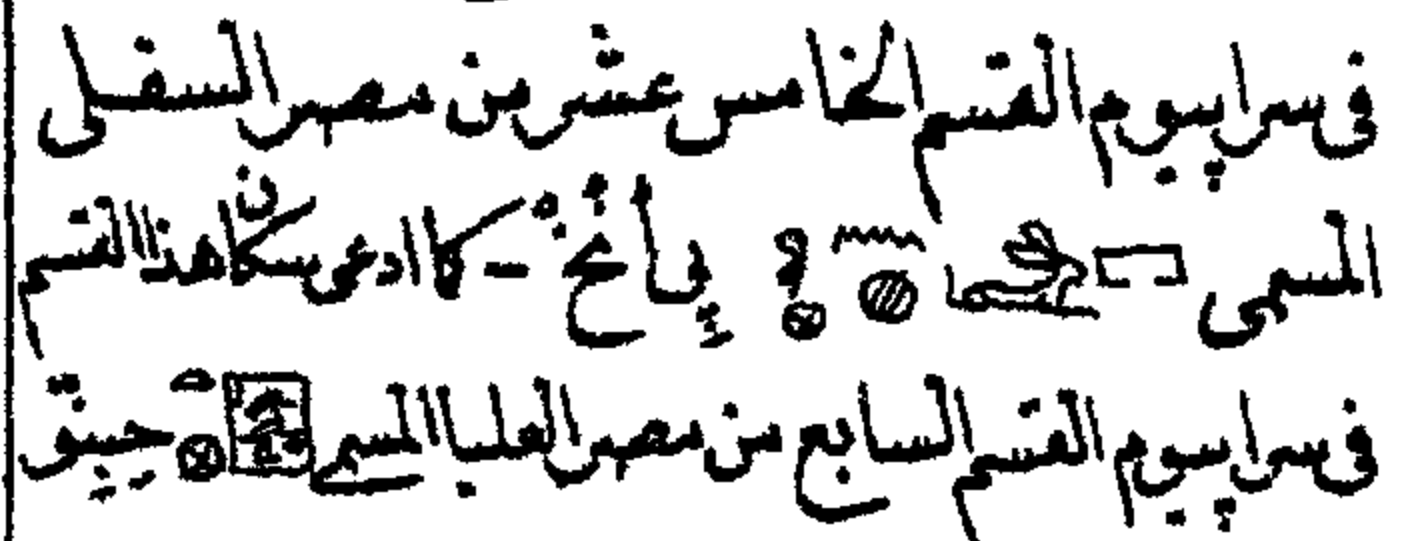 فى سراپيوم القسم الخامس عشر من مصر السفلى
المسمى پى أنخ - كما ادعى سكان هذا القسم
فى سراپيوم القسم السابع من مصر العليا المسمى حبنو